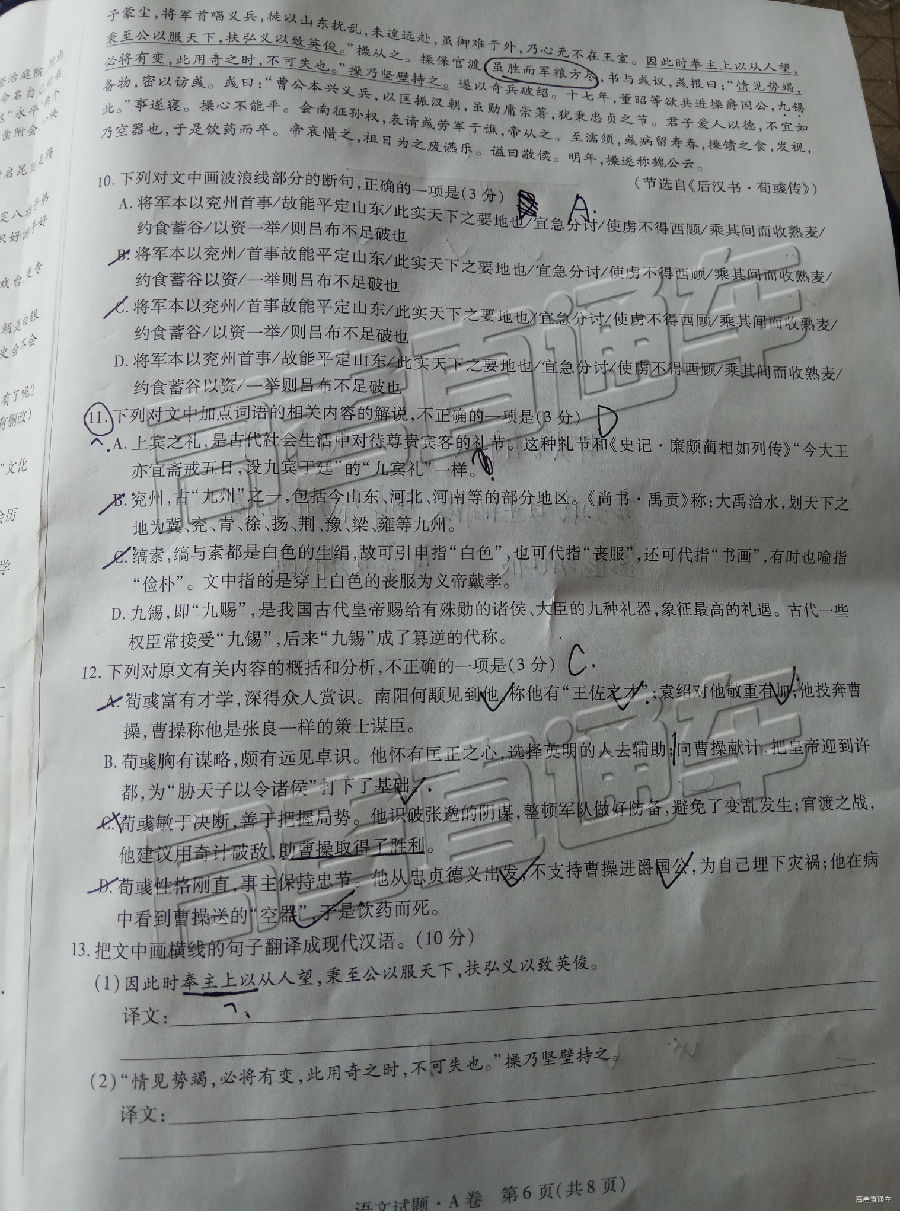 于蒙尘，将军首唱义兵，徒以山东扰乱，未遑远赴，虽御难于外，乃心无不在王室。因此时奉主上以从人望，
秉至公以服天下，扶弘义以致英俊。”操从之。操保官渡，虽胜而军粮方尽，书与彧议，彧报曰：“情见势竭，
必将有变，此用奇之时，不可失也。”操乃坚壁持之。遂以奇兵破绍。十七年，董昭等欲共进操爵国公，九锡
备物，密以访彧。彧曰：“曹公本兴义兵，以匡振汉朝，虽勋庸崇著，犹秉忠贞之节。君子爱人以德，不宜如
此。”事遂寝。操心不能平。会南征孙权，表请彧劳军于谯，帝从之。至濡须，彧病留寿春，操馈之食，发视，
乃空器也，于是饮药而卒。帝哀惜之，祖日为之废谯乐。谥曰敬侯。明年，操遂称魏公云。
（节选自《后汉书·荀彧传》）
10. 下列对文中画波浪线部分的断句，正确的一项是（3分） A.
A. 将军本以兖州首事/故能平定山东/此实天下之要地也/宜急分讨/使虏不得西顾/乘其间而收熟麦/
约食蓄谷/以资一举/则吕布不足破也
B. 将军本以兖州/首事故能平定山东/此实天下之要地也/宜急分讨/使虏不得西顾/乘其间而收熟麦/
约食蓄谷以资/一举则吕布不足破也
C. 将军本以兖州/首事故能平定山东/此实天下之要地也/宜急分讨/使虏不得西顾/乘其间而收熟麦/
约食蓄谷/以资一举/则吕布不足破也
D. 将军本以兖州首事/故能平定山东/此实天下之要地也/宜急分讨/使虏不得西顾/乘其间而收熟麦/
约食蓄谷以资/一举则吕布不足破也
11. 下列对文中加点词语的相关内容的解说，不正确的一项是（3分） D
A. 上宾之礼，是古代社会生活中对待尊贵宾客的礼节。这种礼节和《史记·廉颇蔺相如列传》“今大王
亦宜斋戒五日，设九宾于廷”的“九宾礼”一样。
B. 兖州，古“九州”之一，包括今山东、河北、河南等的部分地区。《尚书·禹贡》称：大禹治水，划天下之
地为冀、兖、青、徐、扬、荆、豫、梁、雍等九州。
C. 缟素，缟与素都是白色的生绢，故可引申指“白色”，也可代指“丧服”，还可代指“书画”，有时也喻指
“俭朴”。文中指的是穿上白色的丧服为义帝戴孝。
D. 九锡，即“九赐”，是我国古代皇帝赐给有殊勋的诸侯、大臣的九种礼器，象征最高的礼遇。古代一些
权臣常接受“九锡”，后来“九锡”成了篡逆的代称。
12. 下列对原文有关内容的概括和分析，不正确的一项是（3分） C.
A. 荀彧富有才学，深得众人赏识。南阳何颙见到他，称他有“王佐之才”；袁绍对他敬重有加；他投奔曹
操，曹操称他是张良一样的策士谋臣。
B. 荀彧胸有谋略，颇有远见卓识。他怀有匡正之心，选择英明的人去辅助；向曹操献计，把皇帝迎到许
都，为“胁天子以令诸侯”打下了基础。
C. 荀彧敏于决断，善于把握局势。他识破张邈的阴谋，整顿军队做好防备，避免了变乱发生；官渡之战，
他建议用奇计破敌，助曹操取得了胜利。
D. 荀彧性格刚直，事主保持忠节。他从忠贞德义出发，不支持曹操进爵国公，为自己埋下灾祸；他在病
中看到曹操送的“空器”，于是饮药而死。
13. 把文中画横线的句子翻译成现代汉语。（10分）
（1）因此时奉主上以从人望，秉至公以服天下，扶弘义以致英俊。
译文：
（2）“情见势竭，必将有变，此用奇之时，不可失也。”操乃坚壁持之。
译文：
语文试题·A卷 第6页（共8页）
高考直通车
高考直通车
高考直通车